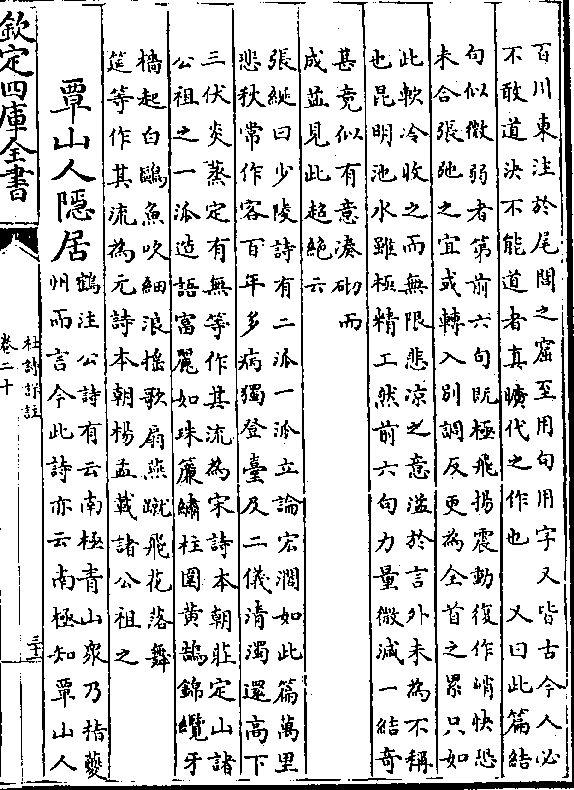 百川東注於尾閭之窟至用句用字又皆古今人必
不敢道決不能道者真曠代之作也　又曰此篇結
句似微弱者第前六句既極飛揚震動復作峭快恐
未合張弛之宜或轉入別調反更為全首之累只如
此軟冷收之而無限悲涼之意溢於言外未為不稱
也昆明池水雖極精工然前六句力量微減一結奇
甚竟似有意湊砌而
成益見此超絕云
張綖曰少陵詩有二派一派立論宏濶如此篇萬里
悲秋常作客百年多病獨登臺及二儀清濁還高下
三伏炎蒸定有無等作其流為宋詩本朝莊定山諸
公祖之一派造語富麗如珠簾繡柱圍黃鵠錦纜牙
檣起白鷗魚吹細浪搖歌扇燕蹴飛花落舞
筵等作其流為元詩本朝楊孟載諸公祖之
覃山人隱居
鶴注公詩有云南極青山衆乃指夔
州而言今此詩亦云南極知覃山人
欽定四庫全書
杜詩詳註
卷二十